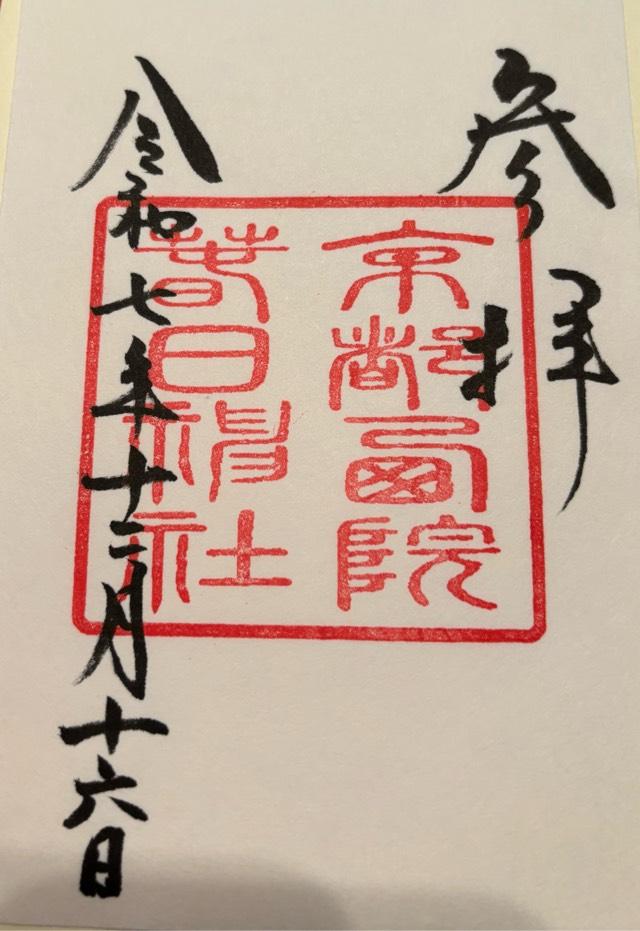 参拝
京都西院
春日神社
令和七年十二月十六日